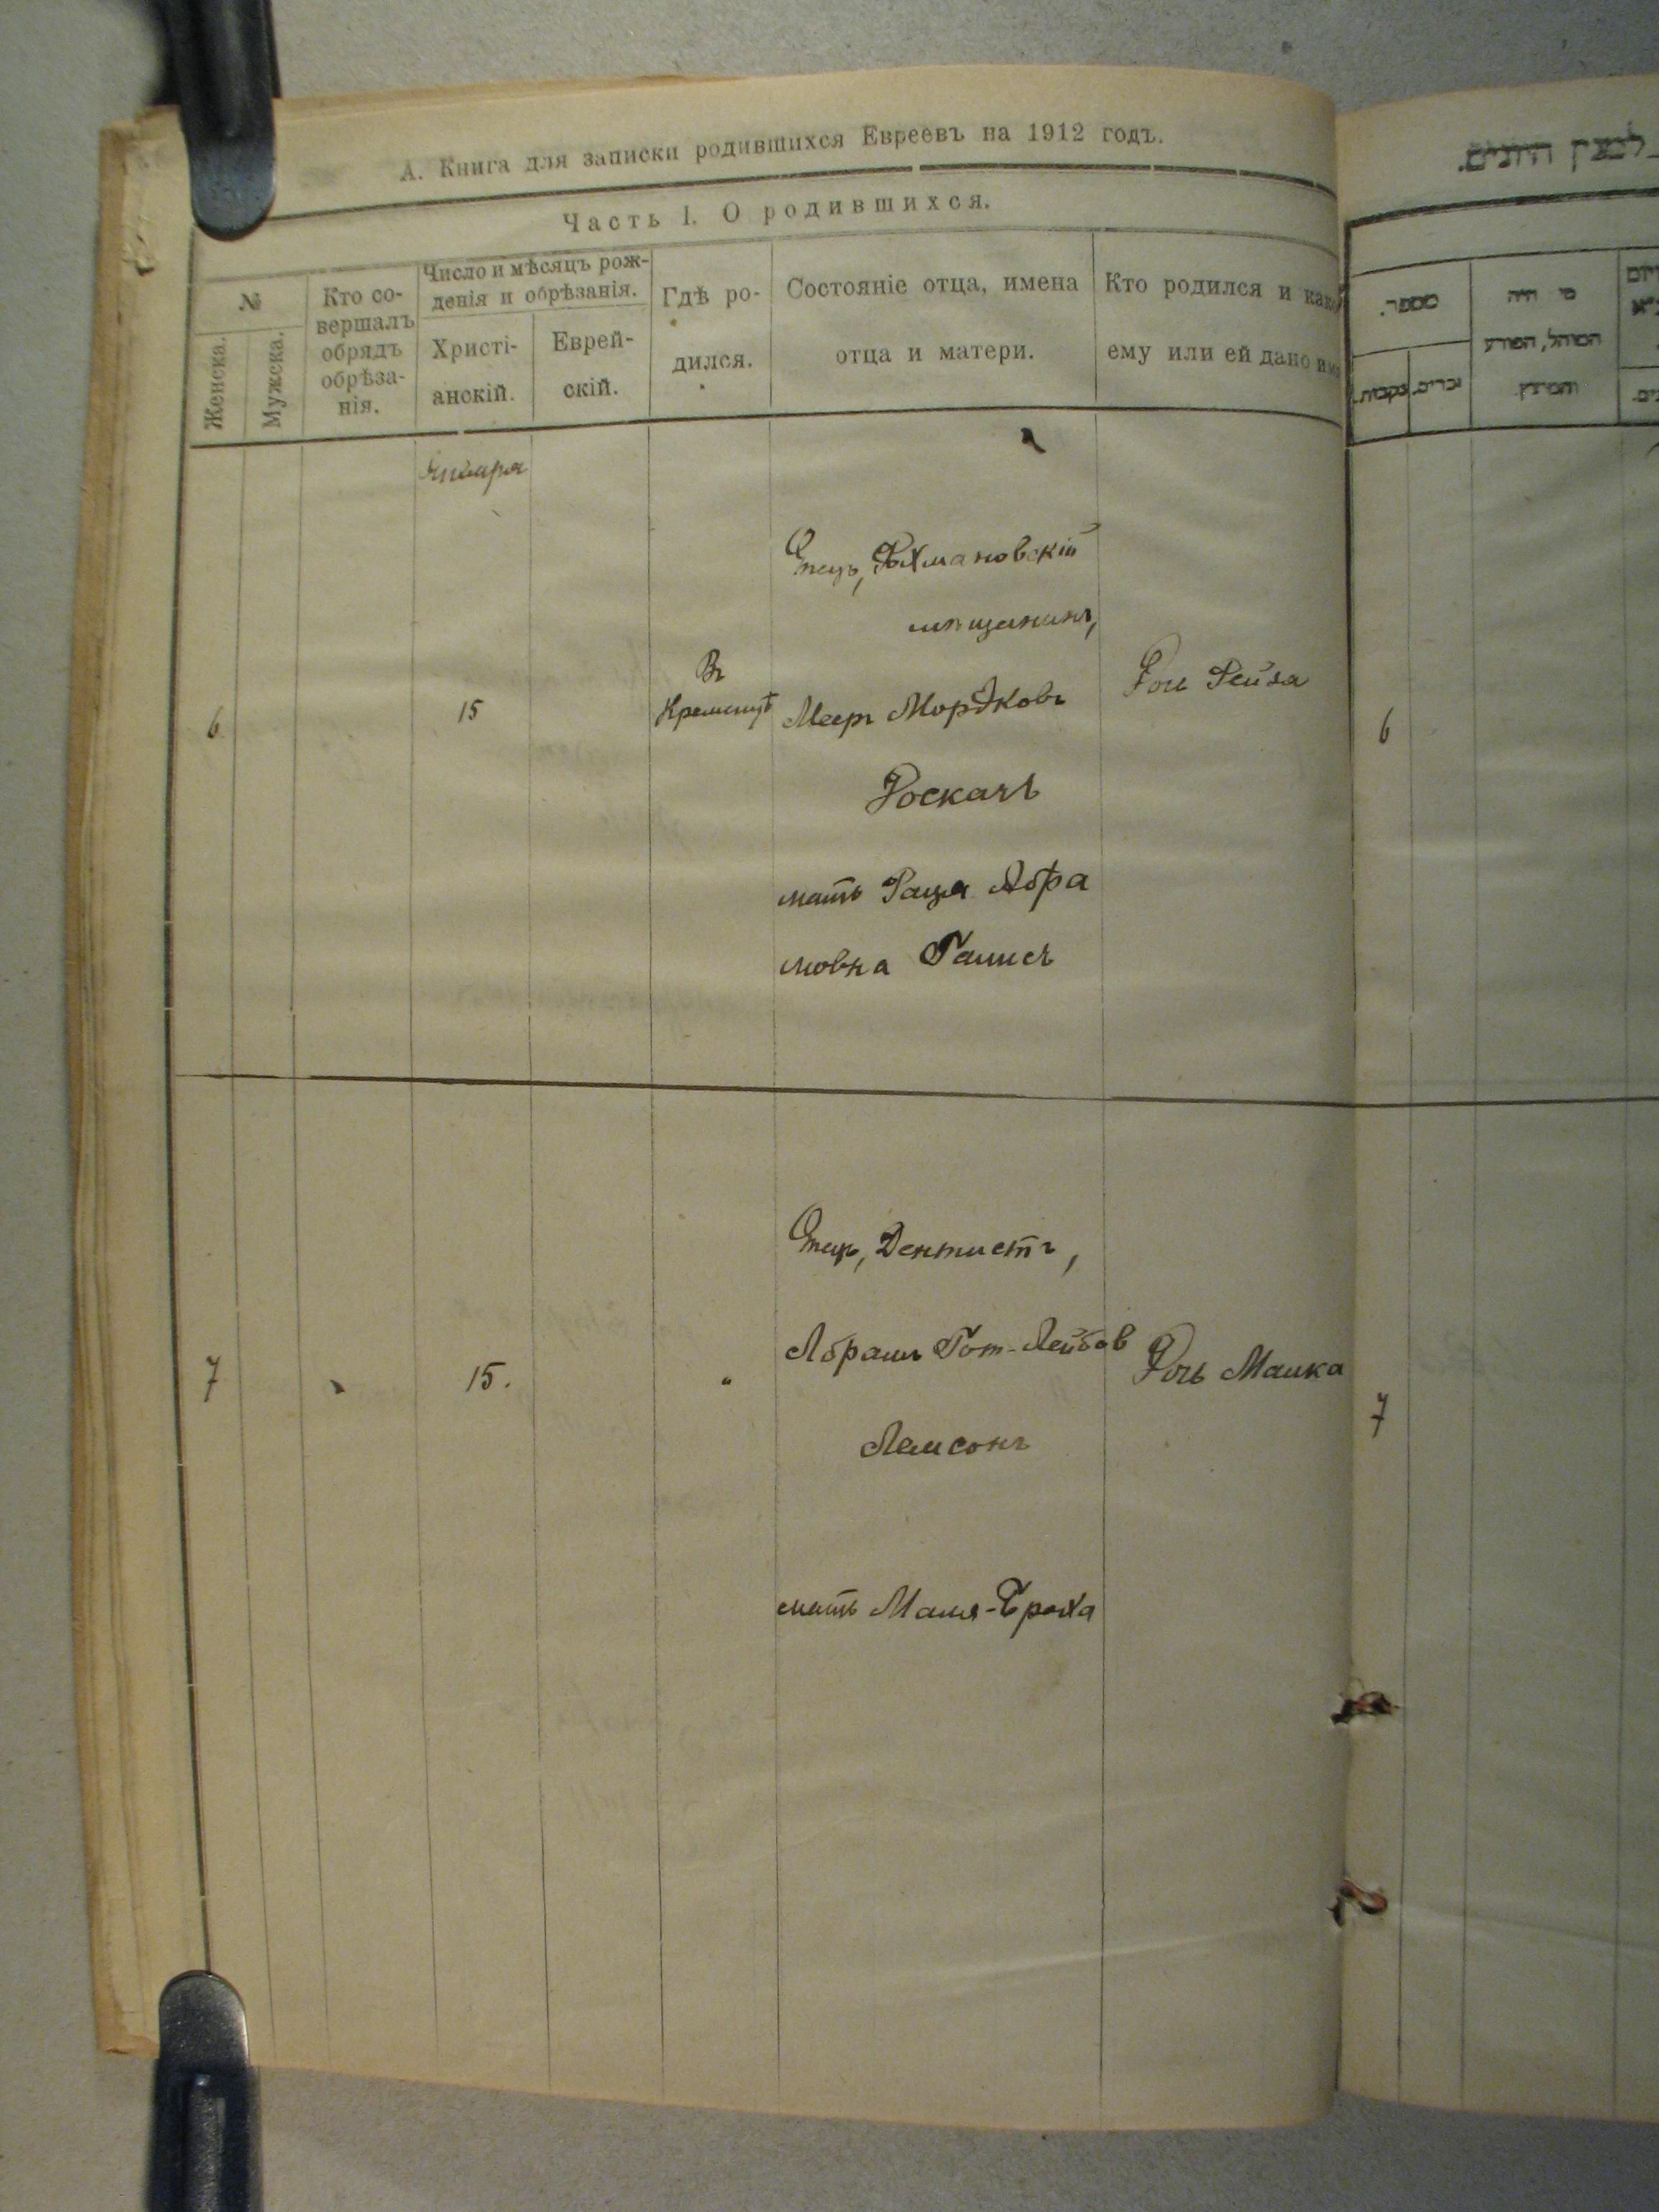 А. Книга для записки родившихся Евреевъ на 1912 годъ.
Часть I. О родившихся.
№
Женска.
Мужска.
Кто со-
вершалъ
обрядъ
обрѣза-
нія.
Число и мѣсяцъ рож-
денія и обрѣзанія.
Христі-
анскій.
Еврей-
скій.
Гдѣ ро-
дился.
Состояніе отца, имена
отца и матери.
Кто родился и како
ему или ей дано имя
Января
6
15
Въ
Кременцѣ
Отецъ, Рахмановскій
мѣщанинъ,
Мееръ Мордковъ
Роскачъ
мать Рация Абра
мовна
Дочь Рейза
7
15.
"
Отецъ, Дентистъ,
Абрамъ Гот-Лейбов
Ламсонъ
мать Маля-Броха
Дочь Манка
מספר.
זכרים.
נקבות.
מי היה
המוהל, הפורע
והמוצץ.
6
7